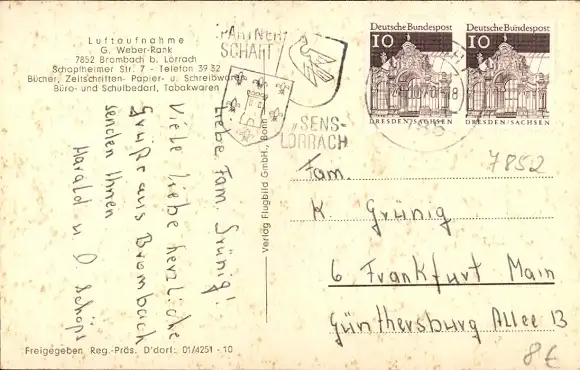 Luftaufnahme
G. Weber-Rank
7852 Brombach b. Lörrach
Schopfheimer Str. 7 - Telefon 39 32
Bücher, Zeitschriften- Papier- u. Schreibwaren
Büro- und Schulbedarf, Tabakwaren
PARTNER-
SCHAFT
"SENS-
LÖRRACH
Deutsche Bundespost
10
DRESDEN/SACHSEN
Deutsche Bundespost
10
DRESDEN/SACHSEN
Liebe Fam. Grünig!
Viele liebe herzliche
Grüße aus Brombach
senden Ihnen
Harald u
Verlag Flugbild GmbH, Bonn
7852
Fam.
K Grünig
6 Frankfurt Main
Günthersburg Allee 13
8€
Freigegeben Reg.-Präs. D'dorf: 01/4251 - 10